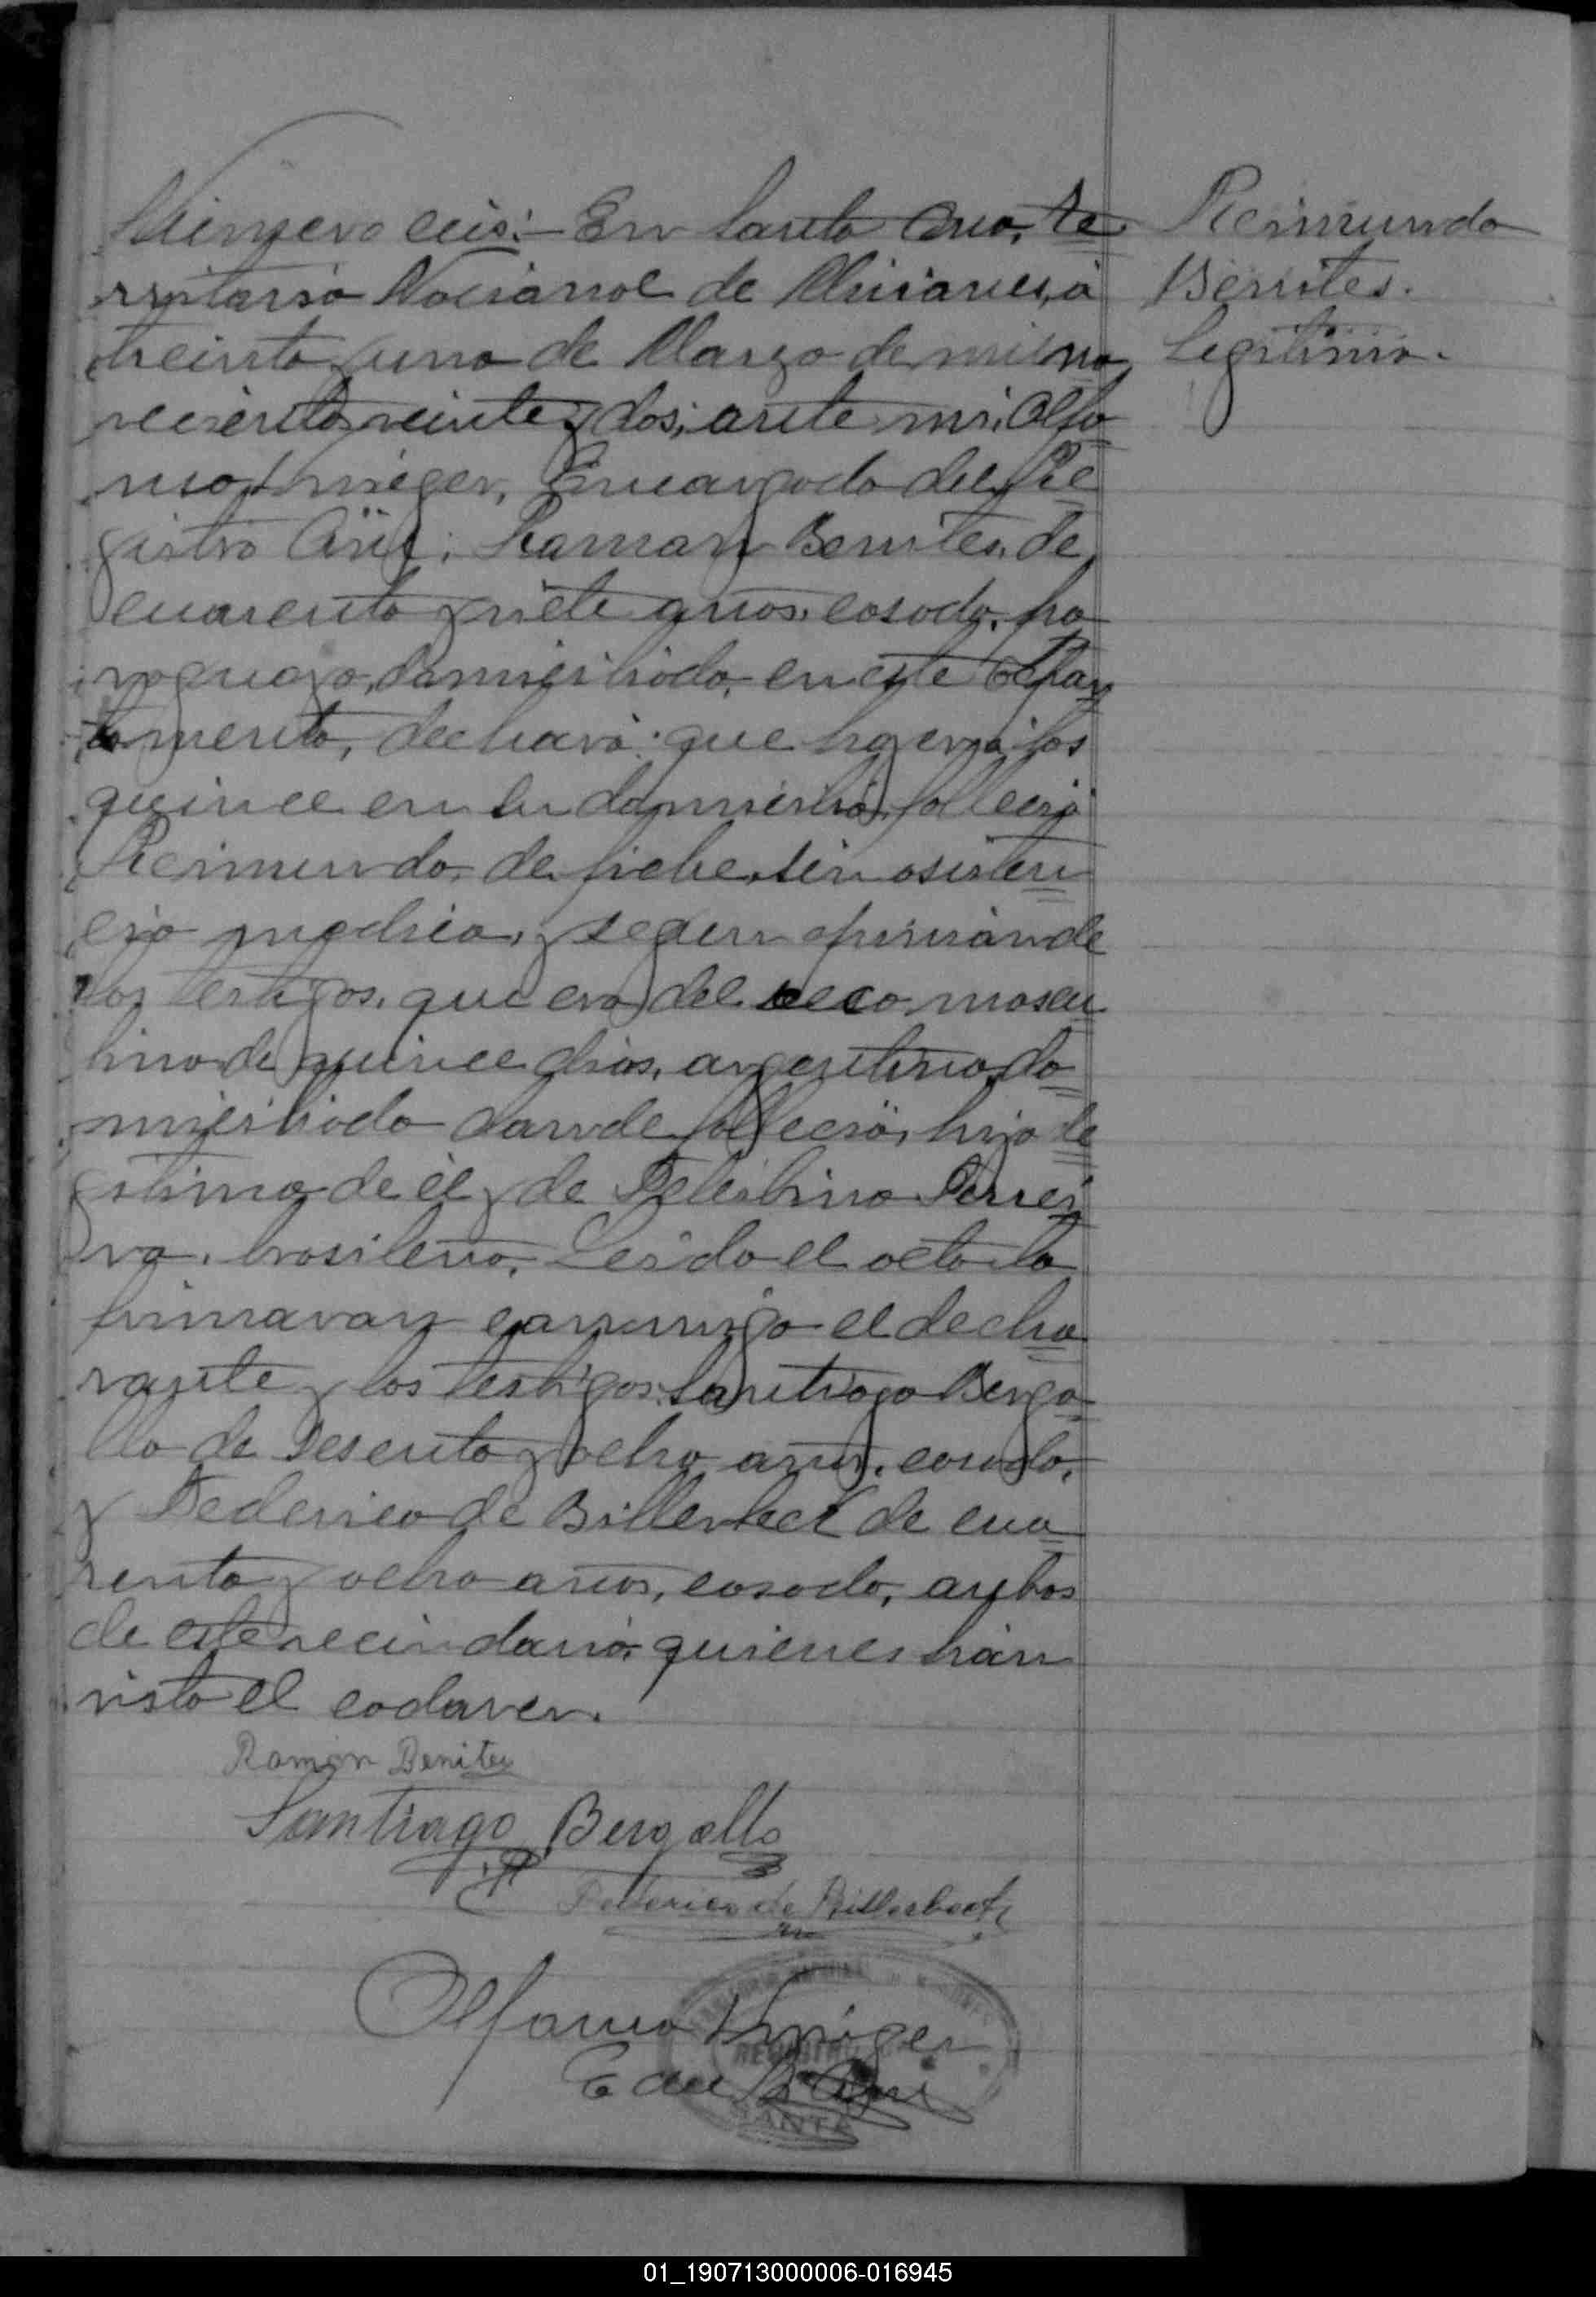 Número seis: En Santa Ana, te
rritorio Nacional de Misiones, á
treinta y uno de Marzo de mil no
vecientos veinte y dos; ante mi, Alfo
nso Kruger, Encargado del Re
gistro Civil; Raman Benites, de
cuarenta y siete años, casado, pa
raguayo, domiciliado, en este Depar
tamento, declaró: que hoy en a las
quince en su domicilio, falleció
Reimundo, de fiebre, sin asisten
cia medica, y segun opinión de
los testigos, que era del sexo mascu
lino de quince dias, argentino, do
miciliado donde falleció, hijo le
gitimo de él y de Felisbina Ferrei
ra, brasilera. Leida el acta la
firmaron conmigo el decla
rante y los testigos: Santiago Berga
llo de sesenta y ocho años, casado,
y Federico de Billerbeck de cua
renta y ocho años, casado, ambos
de este vecindario, quienes hán
visto el cadaver.
Ramón Benitez
Santiago Bergallo
Federico de Billerbeck
Alfonso Kruger
E del R Civi
REGISTRO
SANTA
Reimundo
Benites.
Legitimo.
01_190713000006-016945